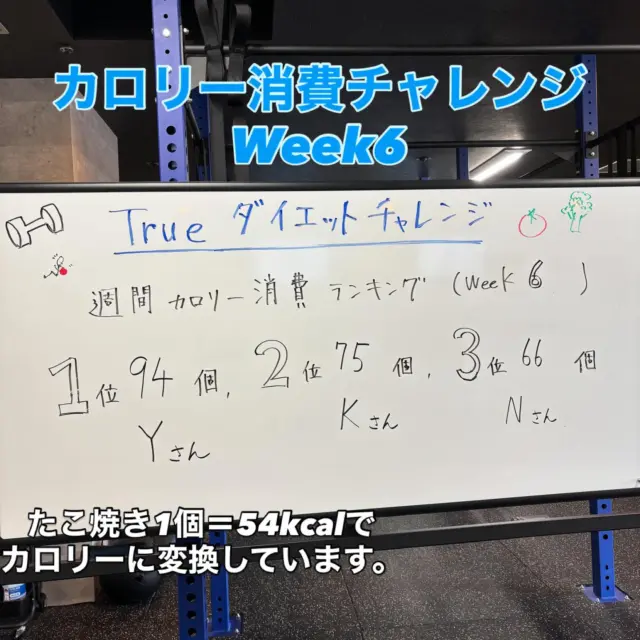 カロリー消費チャレンジ
Week6
True ダイエットチャレンジ
週間 カロリー消費 ランキング (Week 6 )
1位 94 個, 2位 75 個, 3位 66 個
Yさん Kさん Nさん
たこ焼き1個=54kcalで
カロリーに変換しています。